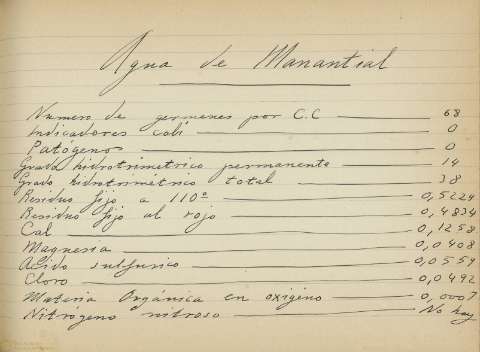 Agua de Manantial
Numero de germenes por C.C 68
Indicadores coli 0
Patógenos 0
Grado hidrotrimetrico permanente 14
Grado hidrotrimétrico total 38
Residuo fijo a 110º 0,5224
Residuo fijo al rojo 0,4834
Cal 0,1258
Magnesia 0,0408
Acido sulfurico 0,0559
Cloro 0,0492
Materia Orgánica en oxigeno 0,0007
Nitrógeno nitroso No hay